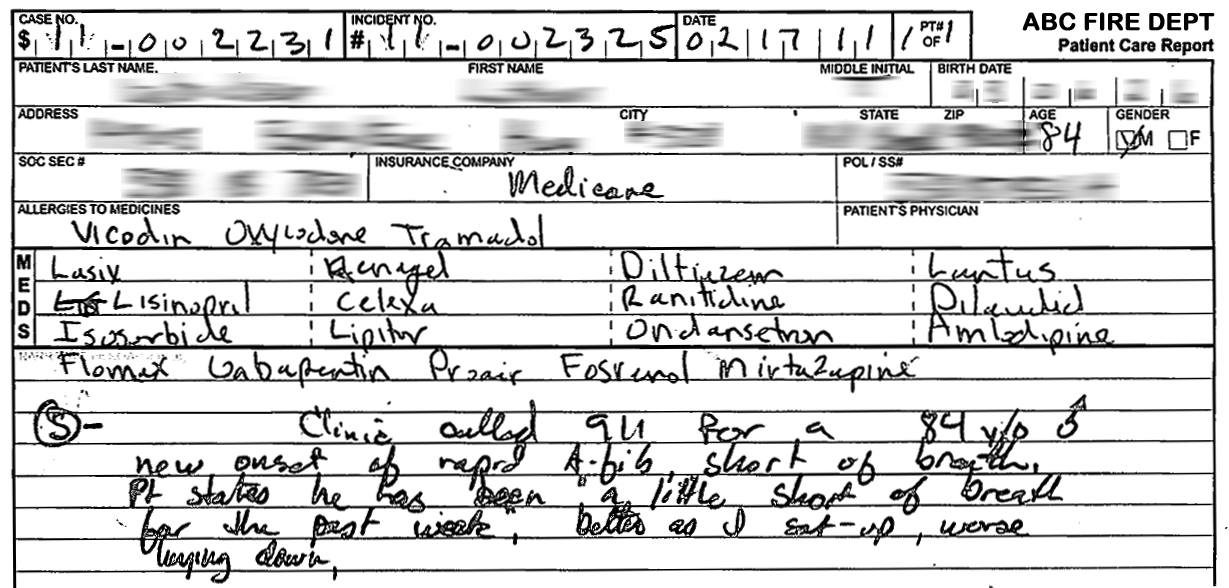 CASE NO. INCIDENT NO. DATE PT# 1 ABC FIRE DEPT
$ 11-002231 # 11-002325 02 17 11 1 OF 1 Patient Care Report
PATIENT'S LAST NAME. FIRST NAME MIDDLE INITIAL BIRTH DATE
ADDRESS CITY STATE ZIP AGE GENDER
84 M F
SOC SEC # INSURANCE COMPANY POL / SS#
Medicare
ALLERGIES TO MEDICINES PATIENT'S PHYSICIAN
Vicodin Oxycodone Tramadol
MEDS
Lasix Renagel Diltiazem Lantus
Lisinopril Celexa Ranitidine Dilaudid
Isosorbide Lipitor Ondansetron Amlodipine
Flomax Gabapentin Proair Fosrenol Mirtazapine
S - Clinic called 911 for a 84 y/o ♂
new onset of rapid A-fib, short of breath.
Pt states he has been "a little short of breath
for the past week", better as I sit-up, worse
laying down,